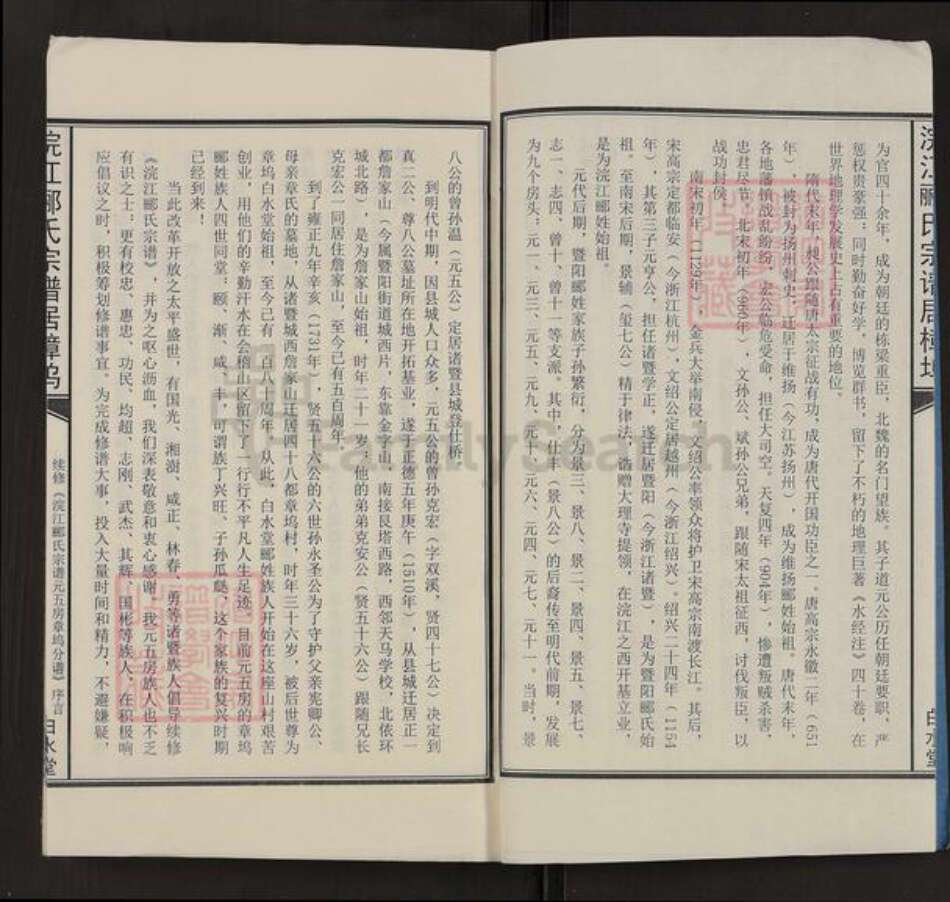 为官四十余年，成为朝廷的栋梁重臣，北魏的名门望族。其子道元公历任朝廷要职，严
惩权贵豪强；同时勤奋好学，博览群书，留下了不朽的地理巨著《水经注》四十卷，在
世界地理学发展史上占有重要的地位。
隋代末年，昶公跟随唐太宗征战有功，成为唐代开国功臣之一。唐高宗永徽二年（651
年），被封为扬州刺史，迁居于维扬（今江苏扬州），成为维扬郦姓始祖。唐代末年，
各地藩镇战乱纷纷，宏公临危受命，担任大司空。天复四年（904年），惨遭叛贼杀害，
忠君尽节。北宋初年（960年），文孙公、斌孙公兄弟，跟随宋太祖征西，讨伐叛臣，以
战功封侯。
南宋初年（1129年），金兵大举南侵，文绍公率领众将护卫宋高宗南渡长江。其后，
宋高宗定都临安（今浙江杭州），文绍公定居越州（今浙江绍兴）。绍兴二十四年（1154
年），其第三子元亨公，担任诸暨学正，遂迁居暨阳（今浙江诸暨），是为暨阳郦氏始
祖。至南宋后期，景辅（玺七公）精于律法，诰赠大理寺提领，在浣江之西开基立业，
是为浣江郦姓始祖。
元代后期，暨阳郦姓家族子孙繁衍，分为景三、景八、景二、景四、景五、景七、
志一、志四、曾十、曾十一等支派。其中，仕丰（景八公）的后裔传至明代前期，发展
为九个房头：元一、元三、元五、元九、元十、元六、元四、元七、元十一。当时，景
八公的曾孙温（元五公）定居诸暨县城登仕桥。
到明代中期，因县城人口众多，元五公的曾孙克宏（字双溪，贤四十七公）决定到
真二公、尊八公墓址所在地开拓基业，遂于正德五年庚午（1510年），从县城迁居正一
都詹家山（今属暨阳街道城西片，东靠金字山，南接艮塔西路，西邻天马学校，北依环
城北路），是为詹家山始祖，时年二十一岁；他的弟弟克安公（贤五十六公）跟随兄长
克宏公一同居住詹家山，至今已有五百周年。
到了雍正九年辛亥（1731年），贤五十六公的六世孙永圣公为了守护父亲宪卿公、
母亲章氏的墓地，从诸暨城西詹家山迁居四十八都章坞村，时年三十六岁，被后世尊为
章坞白水堂始祖，至今已有二百八十周年。从此，白水堂郦姓族人开始在这座山村艰苦
创业，用他们的辛勤汗水在会稽山区留下了一行行不平凡人生足迹。目前元五房的章坞
郦姓族人四世同堂：颐、渐、咸、丰，可谓族丁兴旺、子孙瓜瓞，这个家族的复兴时期
已经到来！
当此改革开放之太平盛世，有国光、湘澍、咸正、林春、勇等诸暨族人倡导续修
《浣江郦氏宗谱》，并为之呕心沥血，我们深表敬意和衷心感谢。我元五房族人也不乏
有识之士：更有校忠、惠忠、功民、均超、志刚、武杰、其辉、国彬等族人，在积极响
应倡议之时，积极筹划修谱事宜。为完成修谱大事，投入大量时间和精力，不避嫌疑，
浣江郦氏宗谱居樟坞
续修《浣江郦氏宗谱元五房章坞分谱》序言
白水堂
FamilySearch